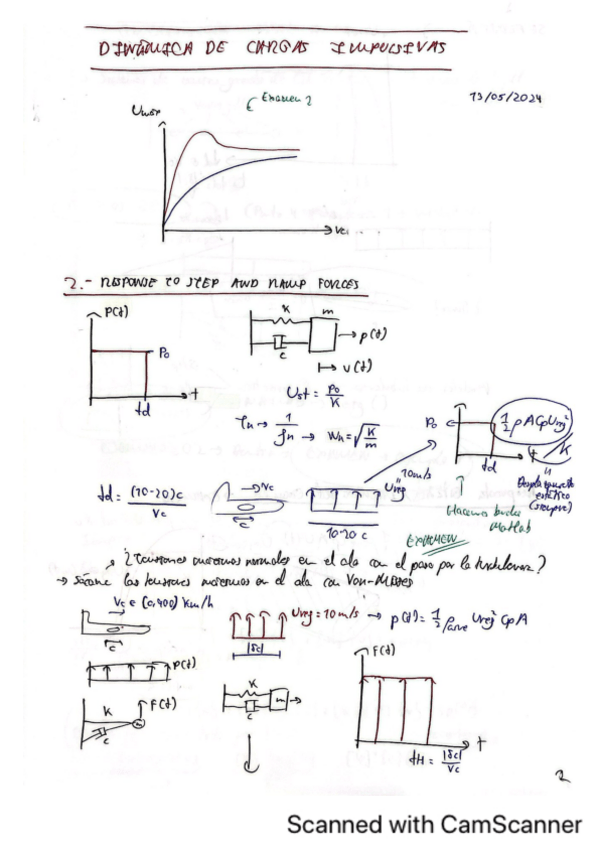 DINÁMICA DE CARGAS IMPULSIVAS
Examen 2
13/05/2024
Umax
Vc
2.- RESPONSE TO STEP AND RAMP FORCES
P(t)
Po
td
t
K
m
c
p(t)
v(t)
Ust = Po/K
Tn → 1/fn → Wn = √K/m
Po
td
1/2 ρ A Cp Urg²
/K
Desplazamiento estático (siempre)
Hacemos bucles Matlab
EXAMEN
td = (10-20)c / Vc
Vc
c
10m/s
Urg
10-20 c
¿Tensiones máximas normales en el ala con el paso por la turbulencia?
→ Sacame las tensiones máximas en el ala con Von-Mises
Vc ∈ (0,400) km/h
c
Urg = 10 m/s → p(t) = 1/2 ρaire Urg² Cp A
18c
p(t)
K
c
m
F(t)
K
c
m
F(t)
t
tH = 18c / Vc
2
Scanned with CamScanner